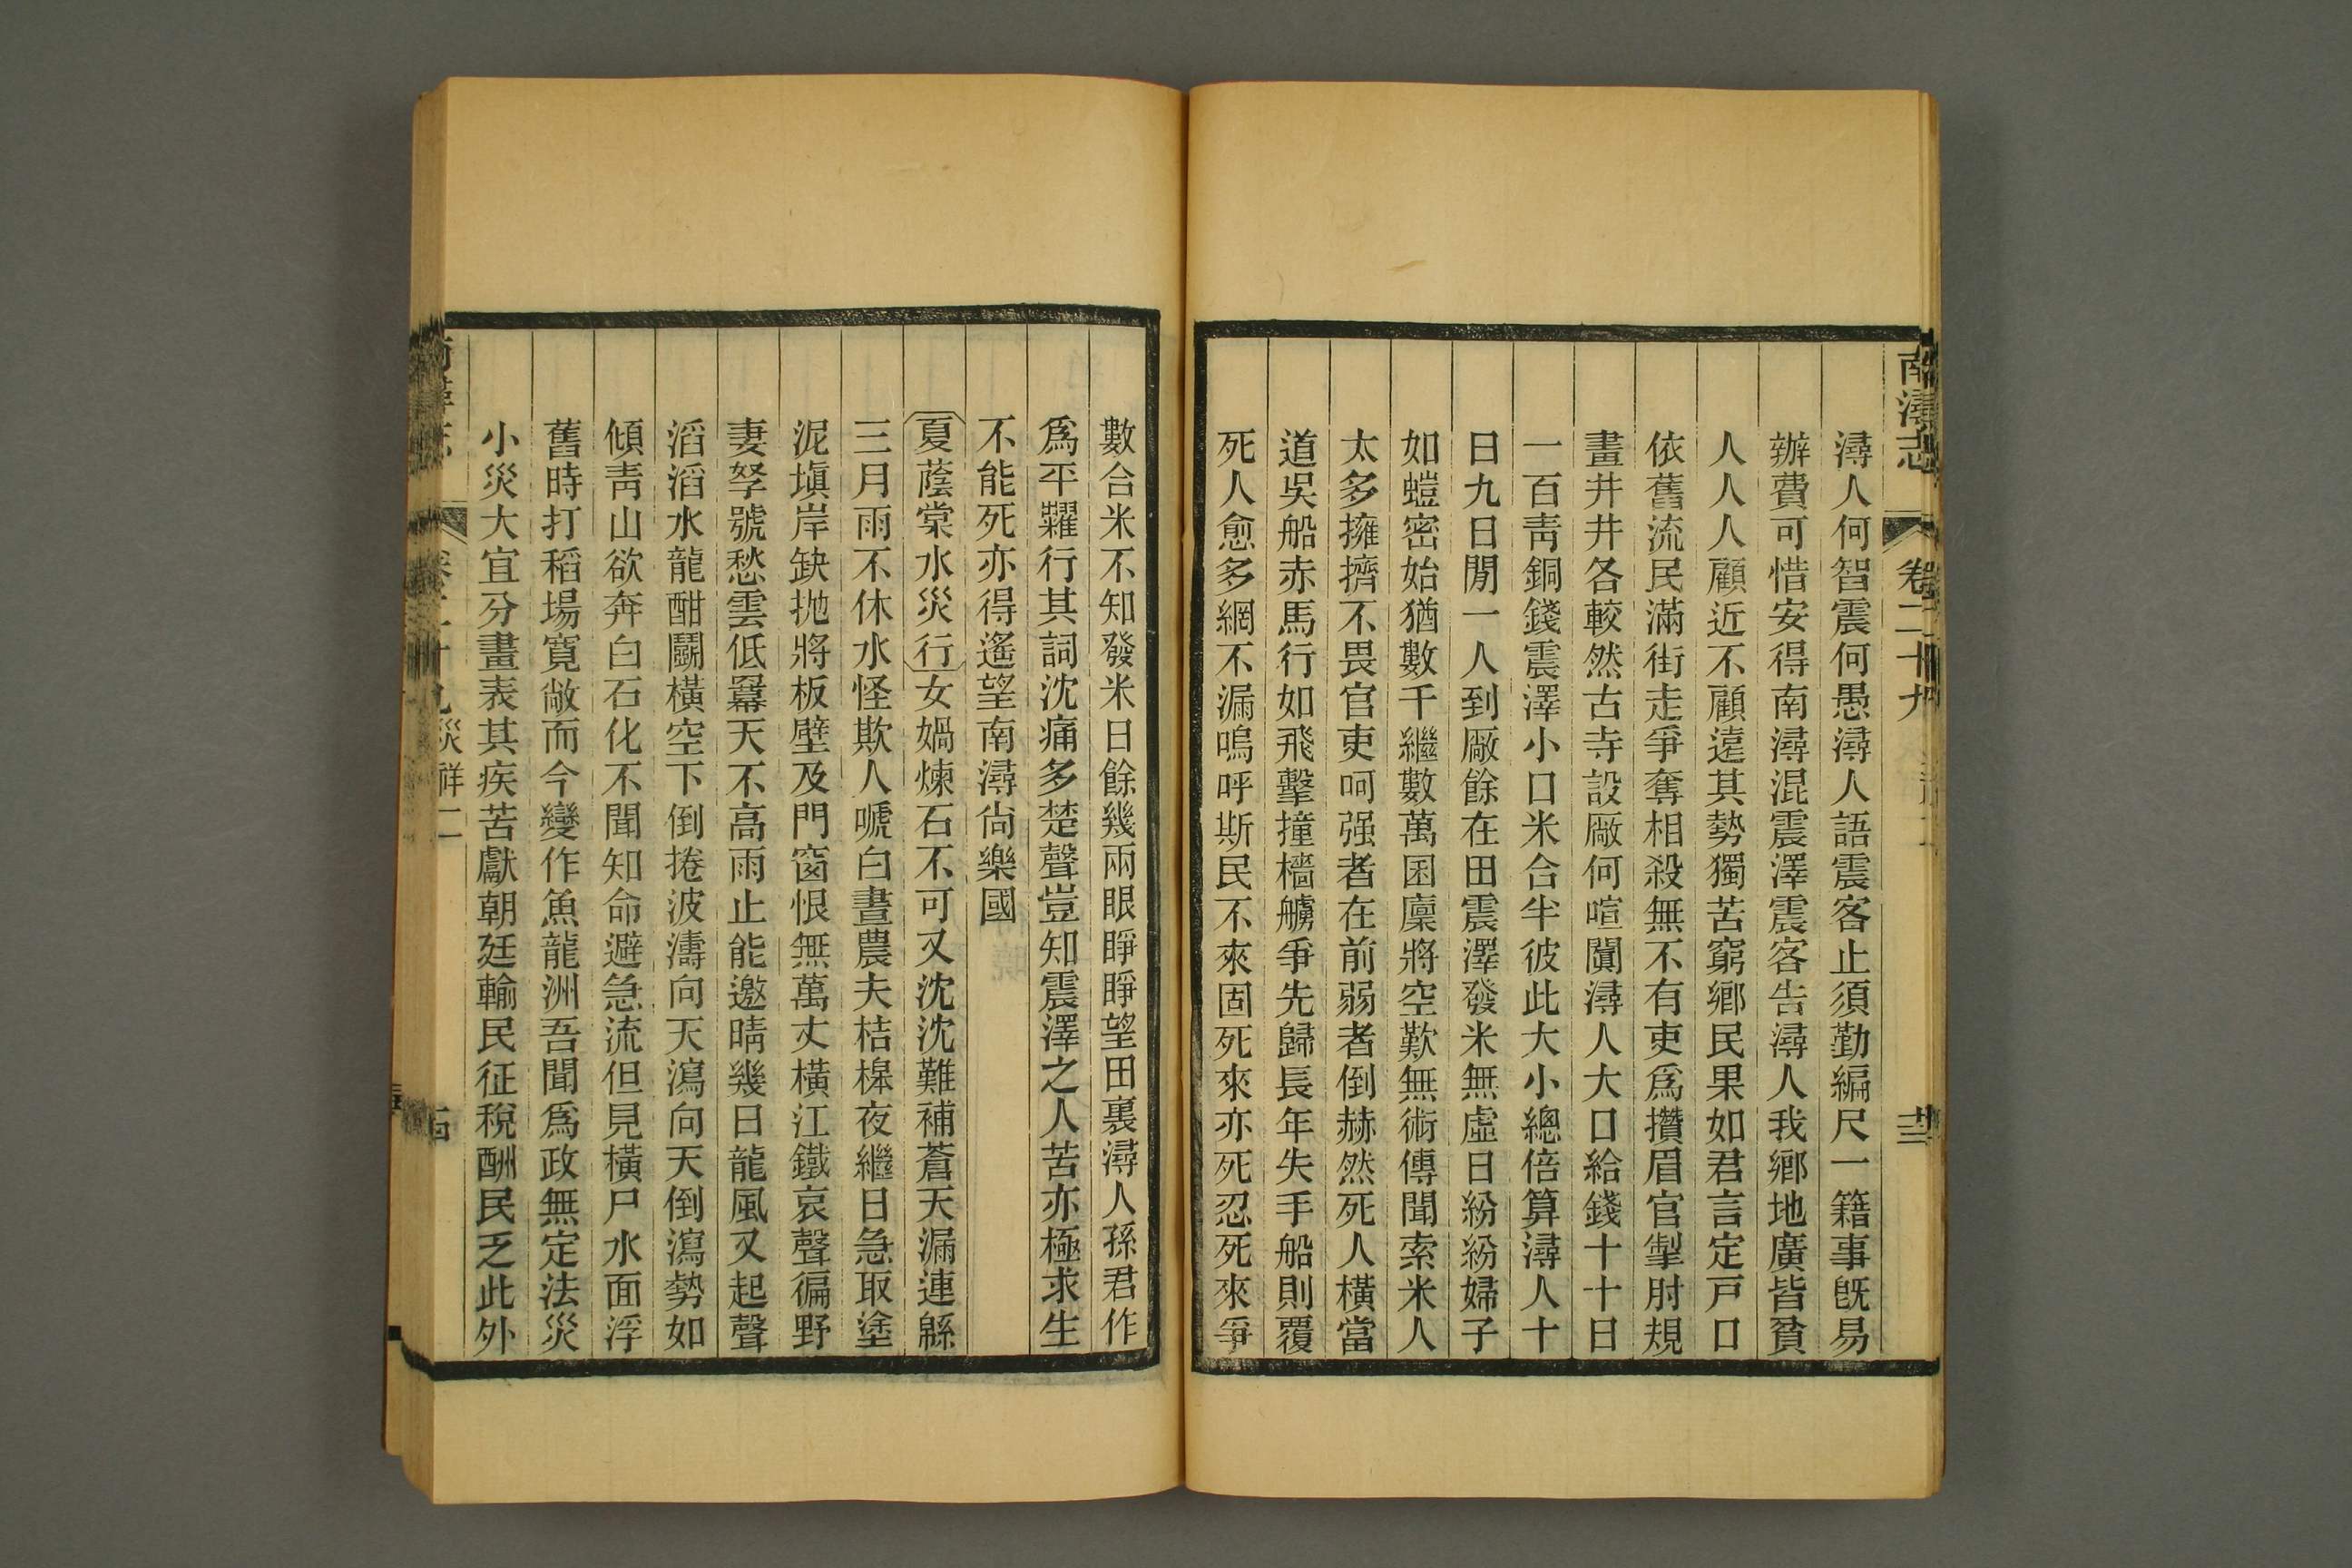 南潯志 卷二十九 廿三
潯人何智震何愚潯人語震客止須勤編尺一籍事旣易
辦費可惜安得南潯混震澤震客告潯人我鄕地廣皆貧
人人人顧近不顧遠其勢獨苦窮鄕民果如君言定戸口
依舊流民滿街走爭奪相殺無不有吏爲攢眉官掣肘規
畫井井各較然古寺設厰何喧闐潯人大口給錢十十日
一百靑銅錢震澤小口米合半彼此大小總倍算潯人十
日九日閒一人到厰餘在田震澤發米無虛日紛紛婦子
如螘密始猶數千繼數萬囷廩將空歎無術傳聞索米人
太多擁擠不畏官吏呵强者在前弱者倒赫然死人橫當
道吳船赤馬行如飛擊撞檣艣爭先歸長年失手船則覆
死人愈多網不漏嗚呼斯民不來固死來亦死忍死來爭
數合米不知發米日餘幾兩眼睜睜望田裏潯人孫君作
爲平糶行其詞沈痛多楚聲豈知震澤之人苦亦極求生
不能死亦得遙望南潯尙樂國
夏蔭棠水災行女媧煉石不可又沈沈難補蒼天漏連緜
三月雨不休水怪欺人唬白晝農夫桔槹夜繼日急取塗
泥塡岸缺抛將板壁及門窗恨無萬丈橫江鐵哀聲徧野
妻孥號愁雲低羃天不高雨止能邀晴幾日龍風又起聲
滔滔水龍酣鬭橫空下倒捲波濤向天瀉向天倒瀉勢如
傾靑山欲奔白石化不聞知命避急流但見橫尸水面浮
舊時打稻場寬敞而今變作魚龍洲吾聞爲政無定法災
小災大宜分畫表其疾苦獻朝廷輸民征稅酬民乏此外
災祥二